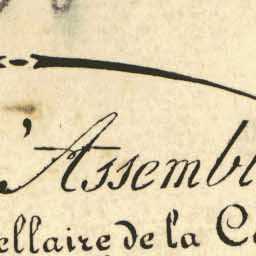 'Assembl
ellaire de la Co